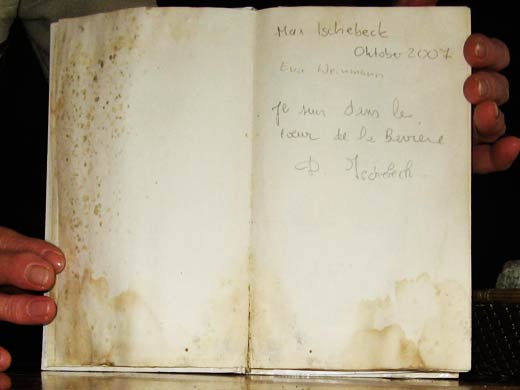 Max Ischebeck
Oktober 2007
Eva Weinmann
Je suis dans le
cœur de la Bavière
D. Ischebeck